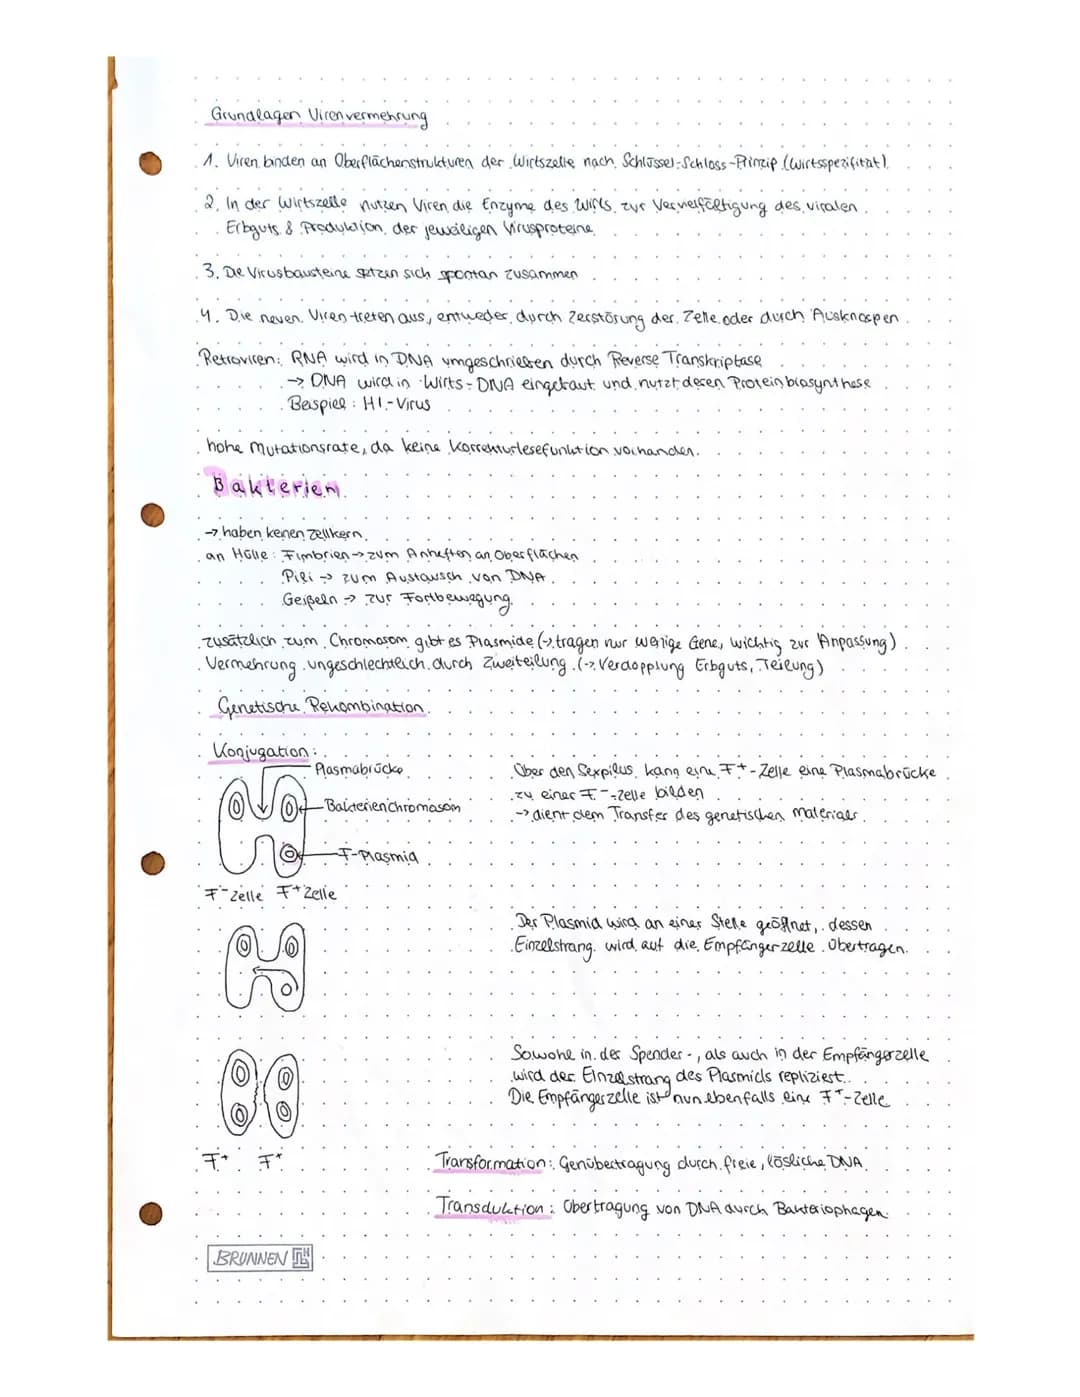 Grundlagen Virenvermehrung
1. Viren binden an Oberflächenstrukturen der Wirtszelle nach Schlüssel-Schloss-Prinzip (Wirtsspezifität).
2. In der Wirtszelle nutzen Viren die Enzyme des Wirts zur Vervielfältigung des viralen
Erbguts & Produktion der jeweiligen Virusproteine
3. Die Virusbausteine setzen sich spontan zusammen
4. Die neuen Viren treten aus, entweder durch Zerstörung der Zelle oder durch Ausknospen
Retroviren: RNA wird in DNA umgeschrieben durch Reverse Transkriptase
→ DNA wird in Wirts-DNA eingebaut und nutzt deren Proteinbiosynthese
Beispiel: HI-Virus
hohe Mutationsrate, da keine Korrekturlesefunktion vorhanden.
Bakterien
→ haben keinen Zellkern
an Hülle: Fimbrien → zum Anheften an Oberflächen
Pili → zum Austausch von DNA
Geißeln → zur Fortbewegung
zusätzlich zum Chromosom gibt es Plasmide (→ tragen nur wenige Gene, wichtig zur Anpassung)
Vermehrung ungeschlechtlich durch Zweiteilung (→ Verdopplung Erbguts, Teilung)
Genetische Rekombination
Konjugation:
Plasmabrücke
Bakterienchromosom
F-Plasmid
F⁻Zelle F⁺Zelle
Über den Sexpilus kann eine F⁺-Zelle eine Plasmabrücke
zu einer F⁻-Zelle bilden
→ dient dem Transfer des genetischen Materials
Der Plasmid wird an einer Stelle geöffnet, dessen
Einzelstrang wird auf die Empfängerzelle übertragen.
Sowohl in der Spender-, als auch in der Empfängerzelle
wird der Einzelstrang des Plasmids repliziert.
Die Empfängerzelle ist nun ebenfalls eine F⁺-Zelle
F⁺ F⁺
Transformation: Genübertragung durch freie, lösliche DNA
Transduktion: Übertragung von DNA durch Bakteriophagen
BRUNNEN